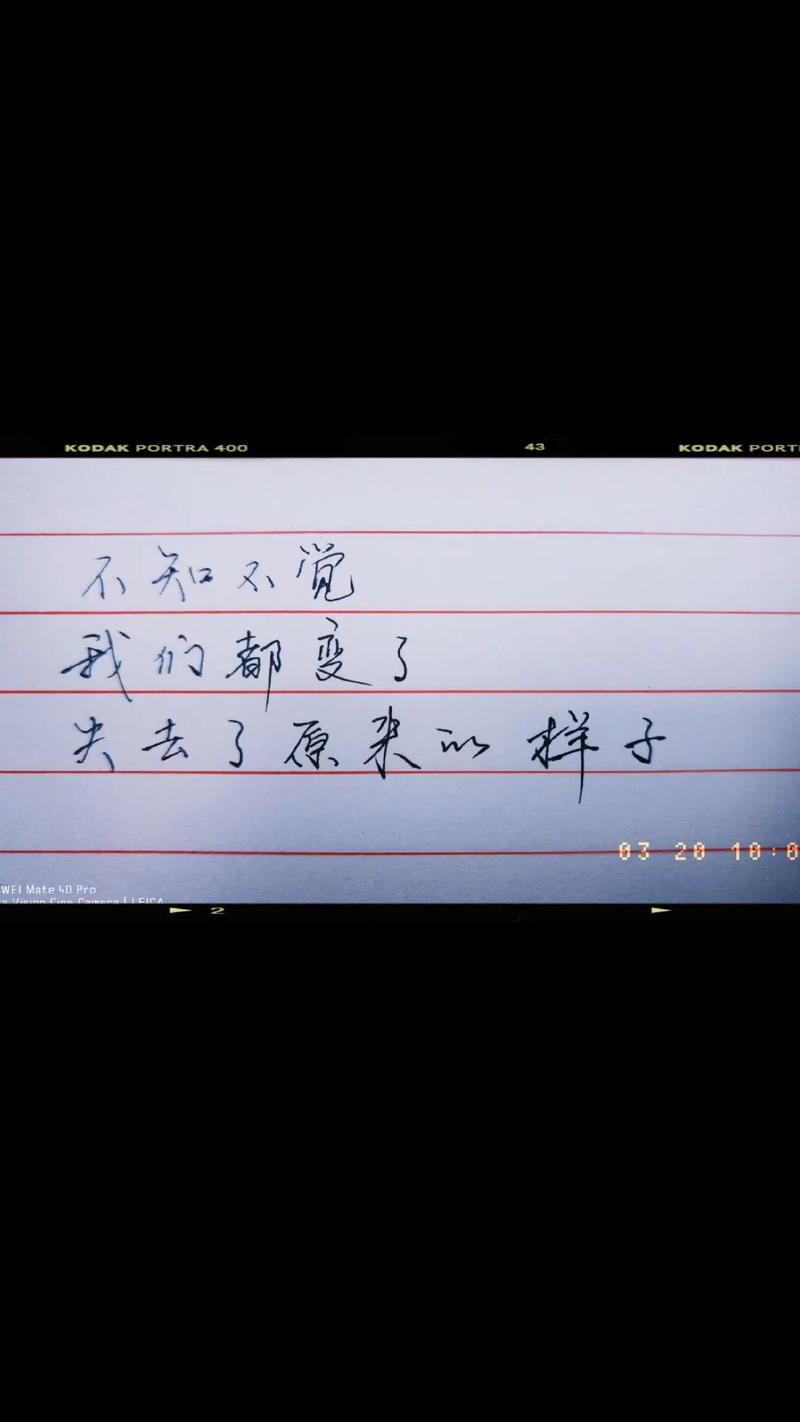 KODAK PORTRA 400 43 KODAK PORT
不知不觉
我们都变了
失去了原来的样子
03 20 10:0
WEI Mate 40 Pro
2